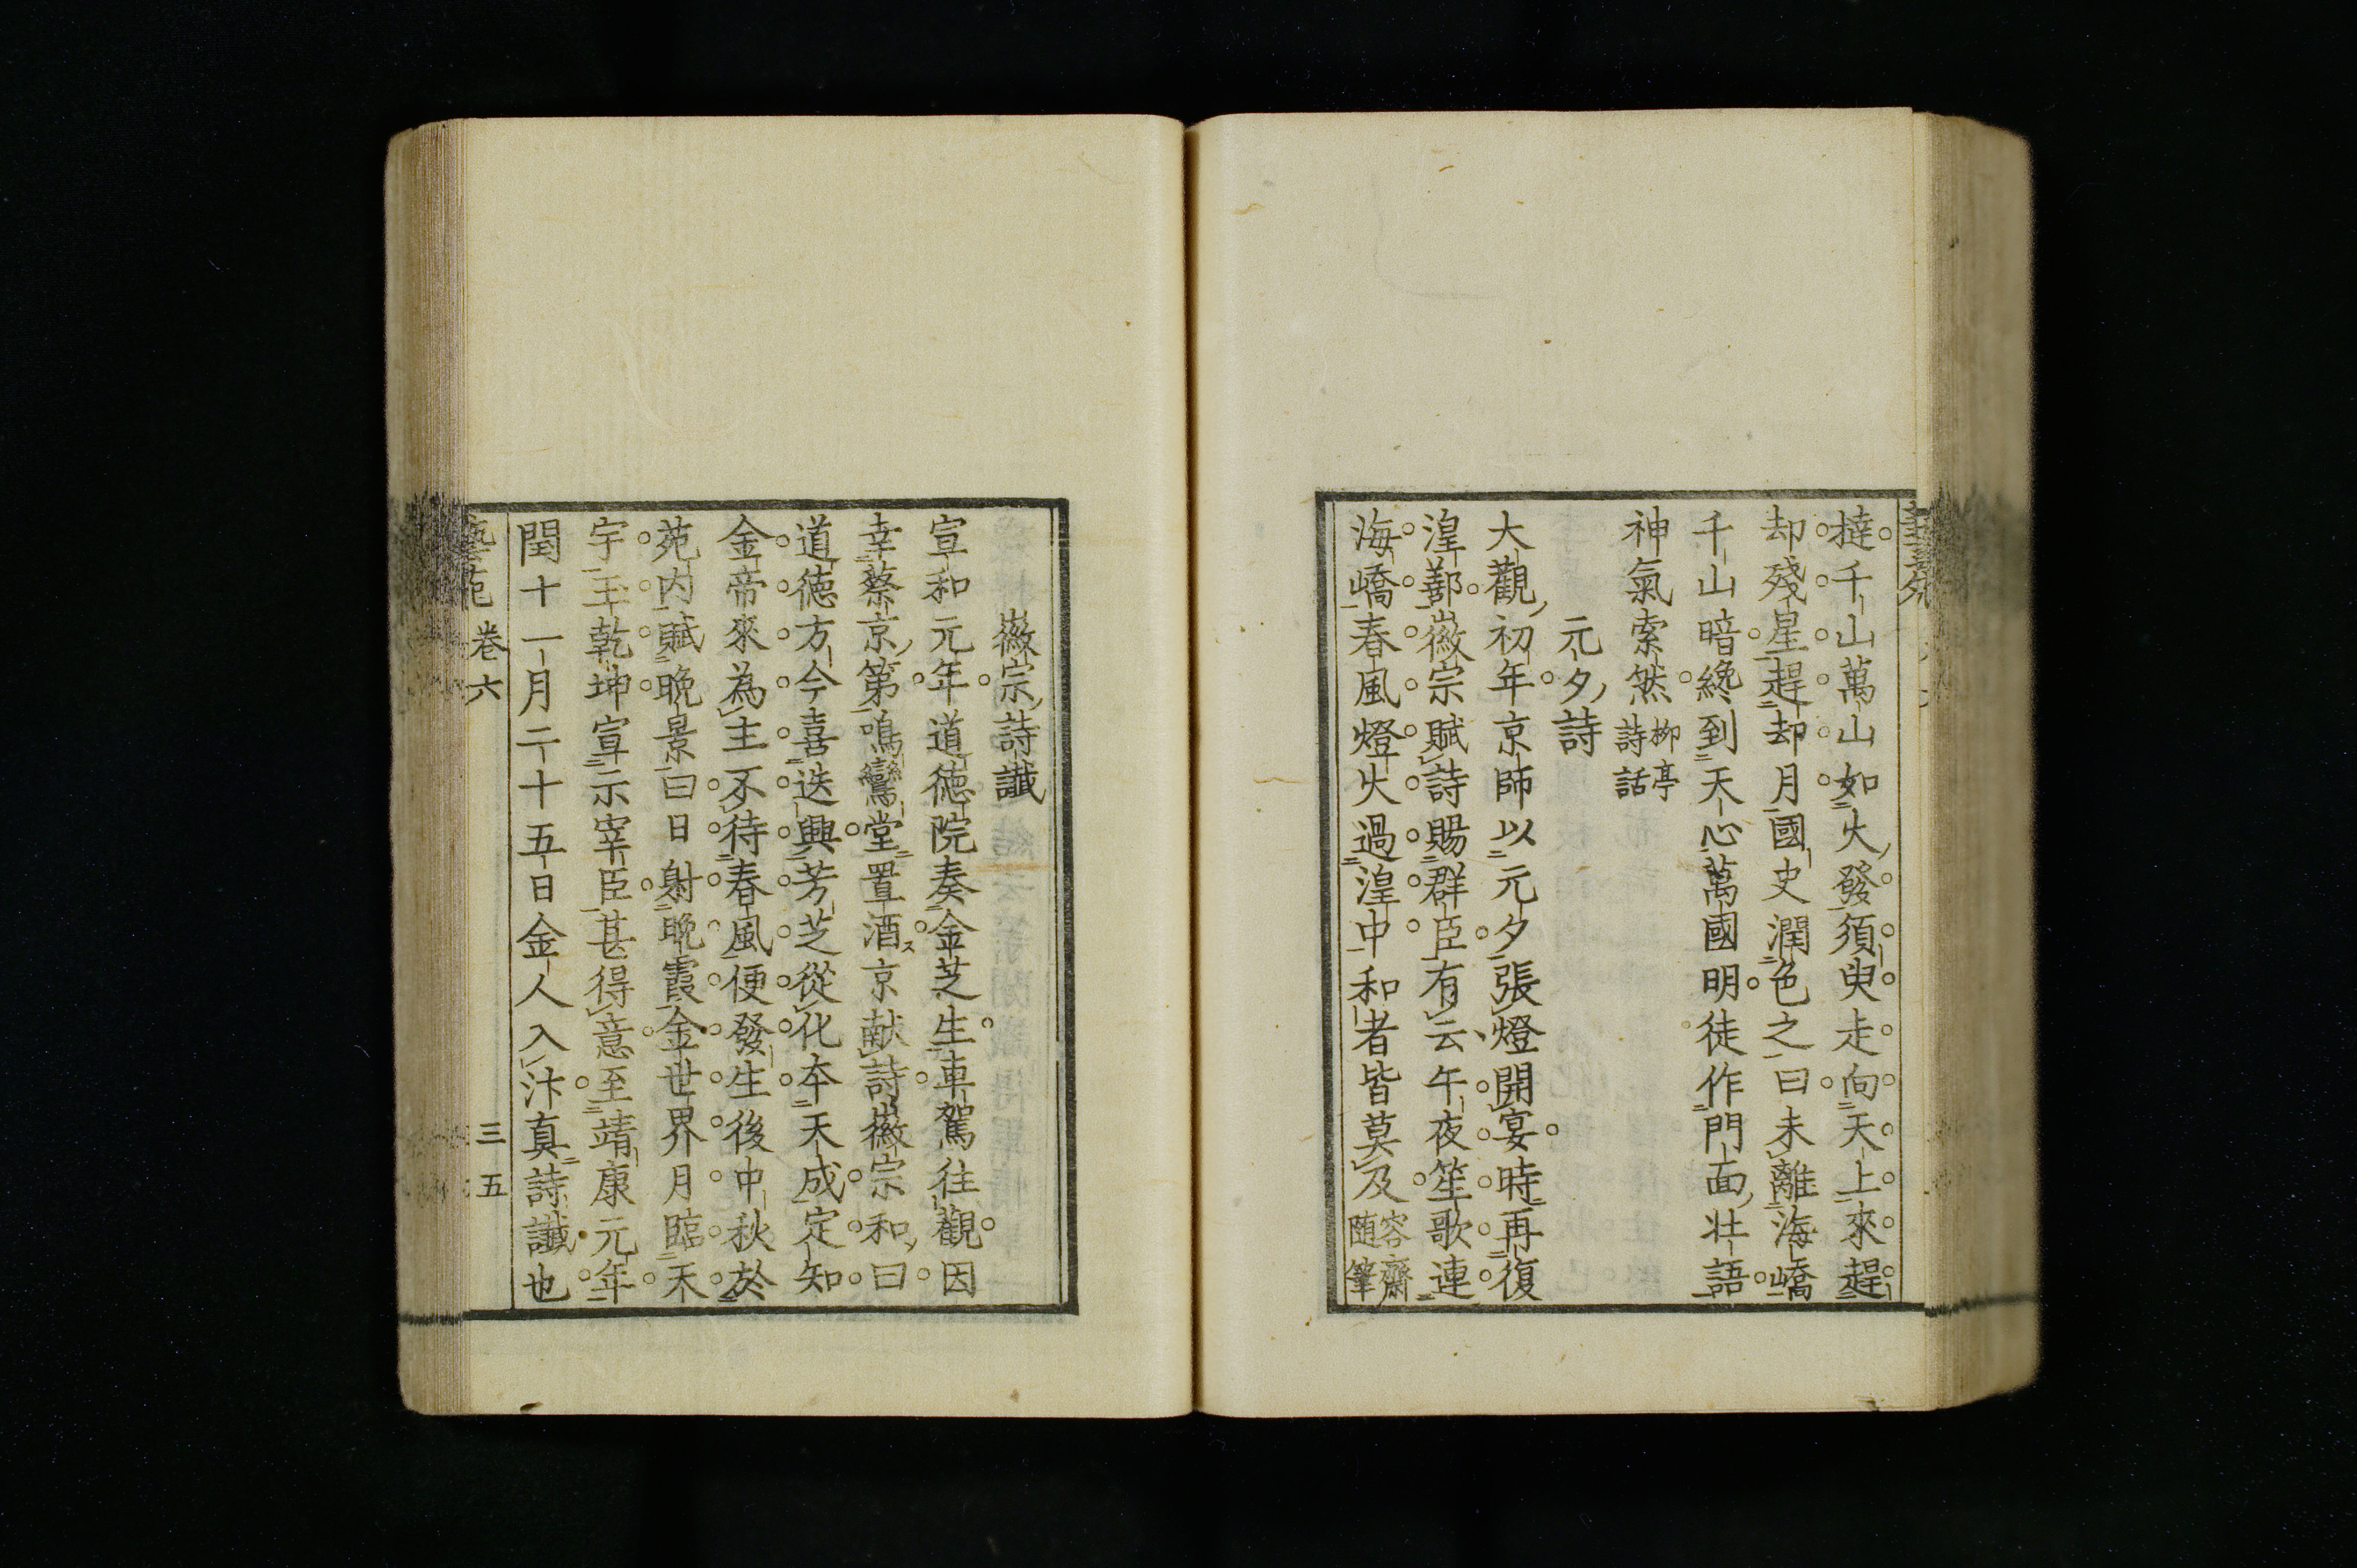 撻千山萬山如火發須臾走向天上來趕
却殘星趕却月國史潤色之曰未離海嶠
千山暗纔到天心萬國明徒作門面壯語
神氣索然柳亭詩話
元夕詩
大觀初年京師以元夕張燈開宴時再復
湟鄯徽宗賦詩賜群臣有云午夜笙歌連
海嶠春風燈火過湟中和者皆莫及容齋随筆
徽宗詩讖
宣和元年道德院奏金芝生車駕往觀因
幸蔡京第鳴鸞堂置酒京献詩徽宗和曰
道徳方今喜迭興芳芝從化夲天成定知
金帝來為主不待春風便發生後中秋於
苑内賦晩景曰日射晩霞金世界月臨天
宇玉乾坤宣示宰臣甚得意至靖康元年
閏十一月二十五日金人入汴真詩讖也
藝苑 卷六 三五